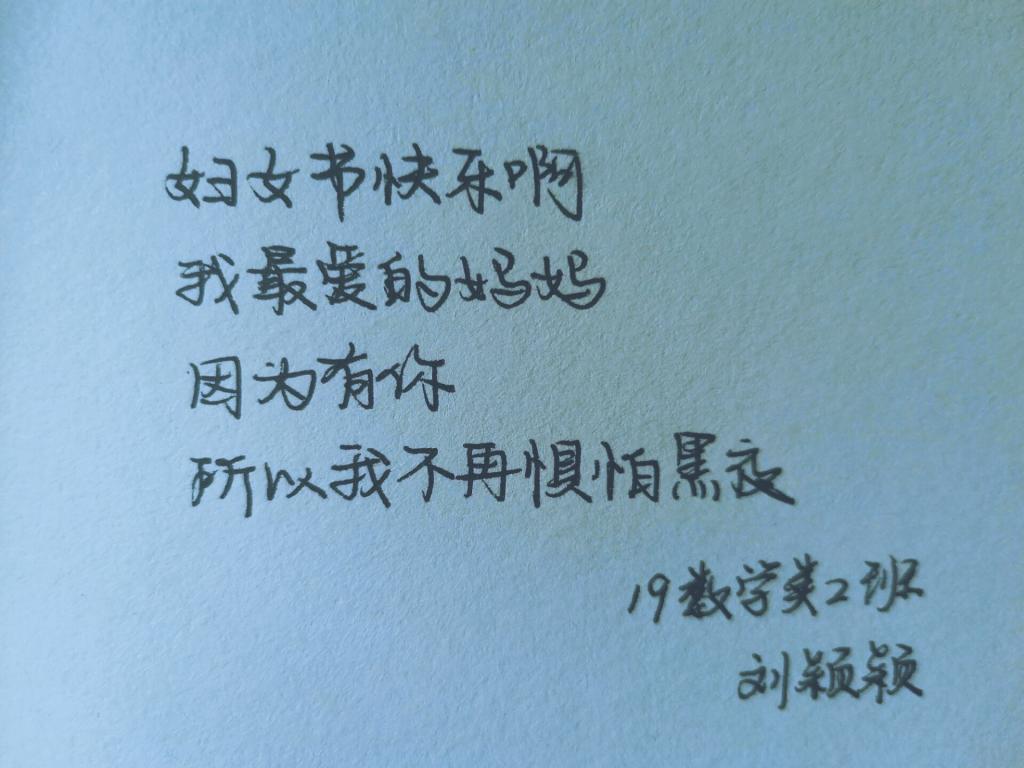 妇女节快乐啊
我最爱的妈妈
因为有你
所以我不再惧怕黑夜
19数学类2班
刘颖颖